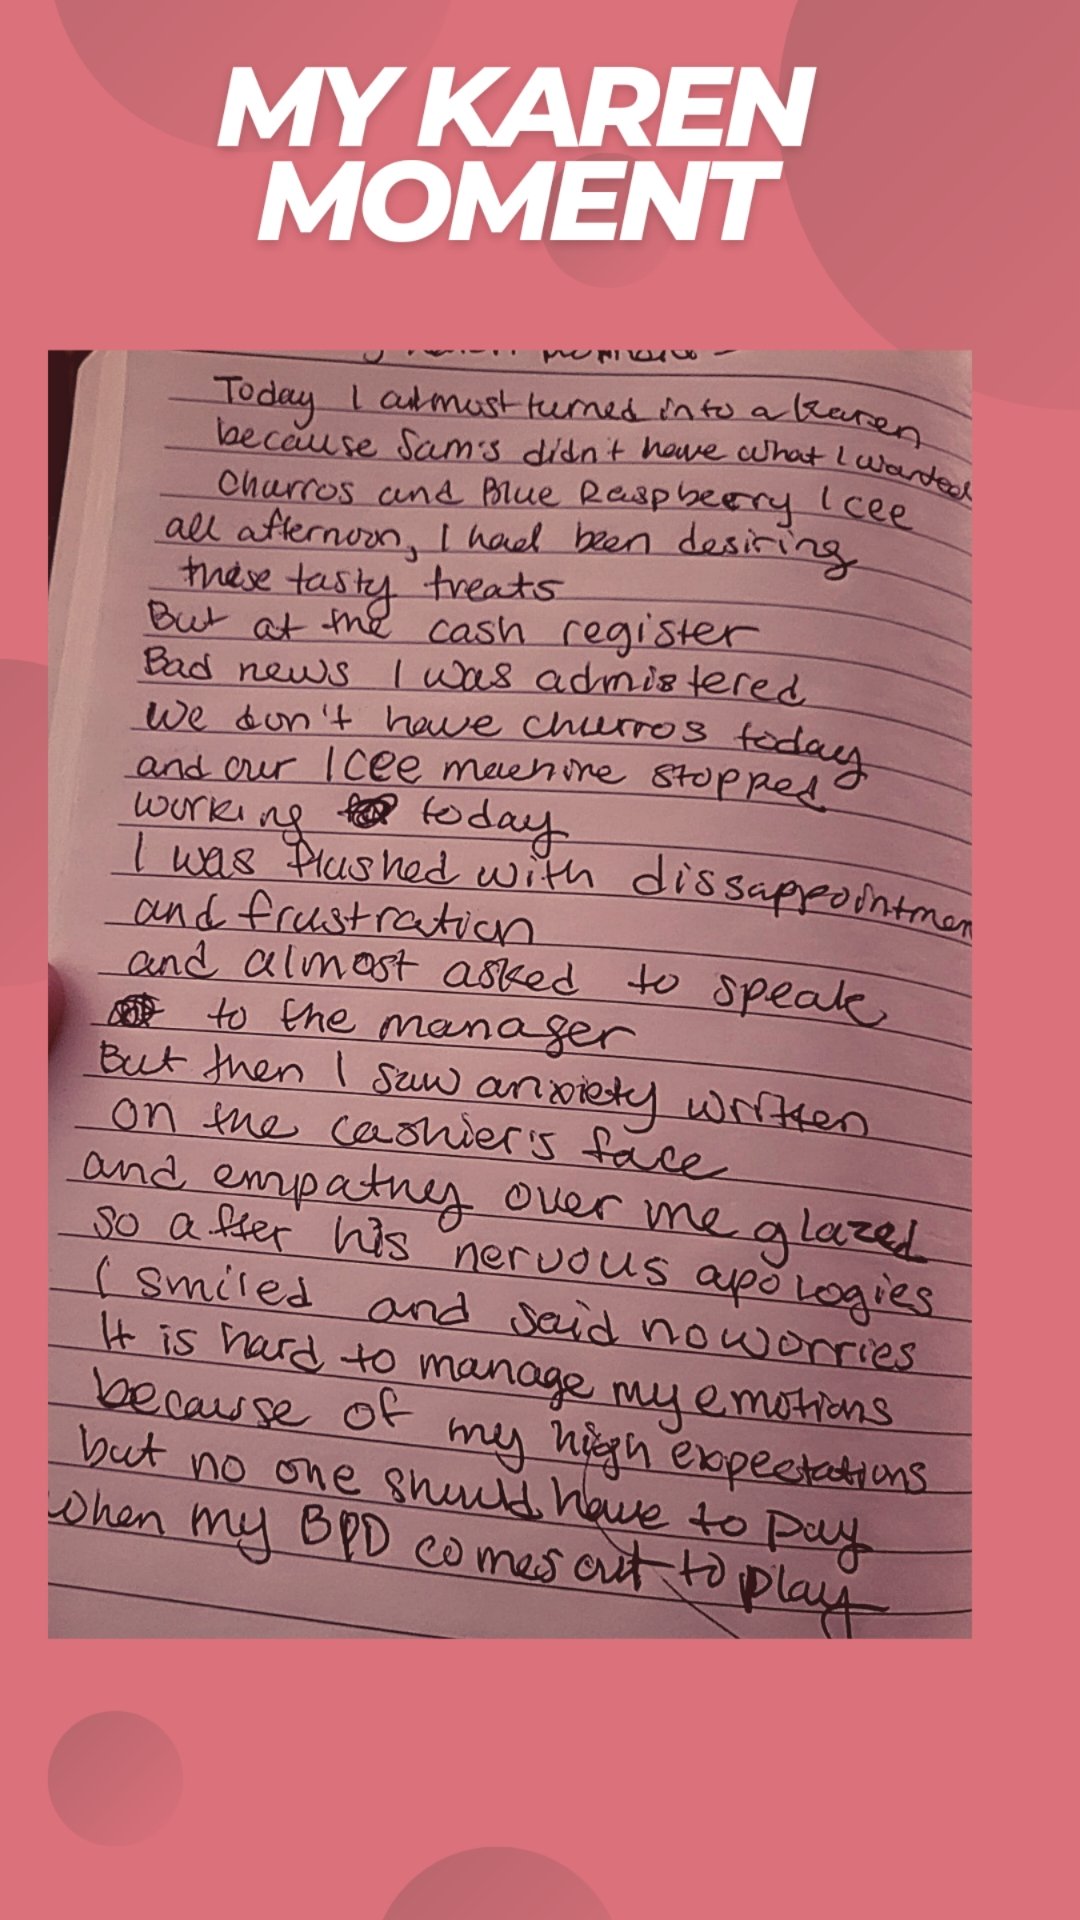 MY KAREN
MOMENT
Today I almost turned into a Karen
because Sam's didn't have what I wanted
Churros and Blue Raspberry Icee
all afternoon, I had been desiring
these tasty treats
But at the cash register
Bad news I was admistered
We don't have churros today
and our ICEE machine stopped
working today
I was flushed with dissappointmen
and frustration
and almost asked to speak
to the manager
But then I saw anxiety written
on the cashier's face
and empathy over me glazed
so after his nervous apologies
I smiled and said no worries
It is hard to manage my emotions
because of my high expectations
but no one should have to pay
when my BPD comes out to play